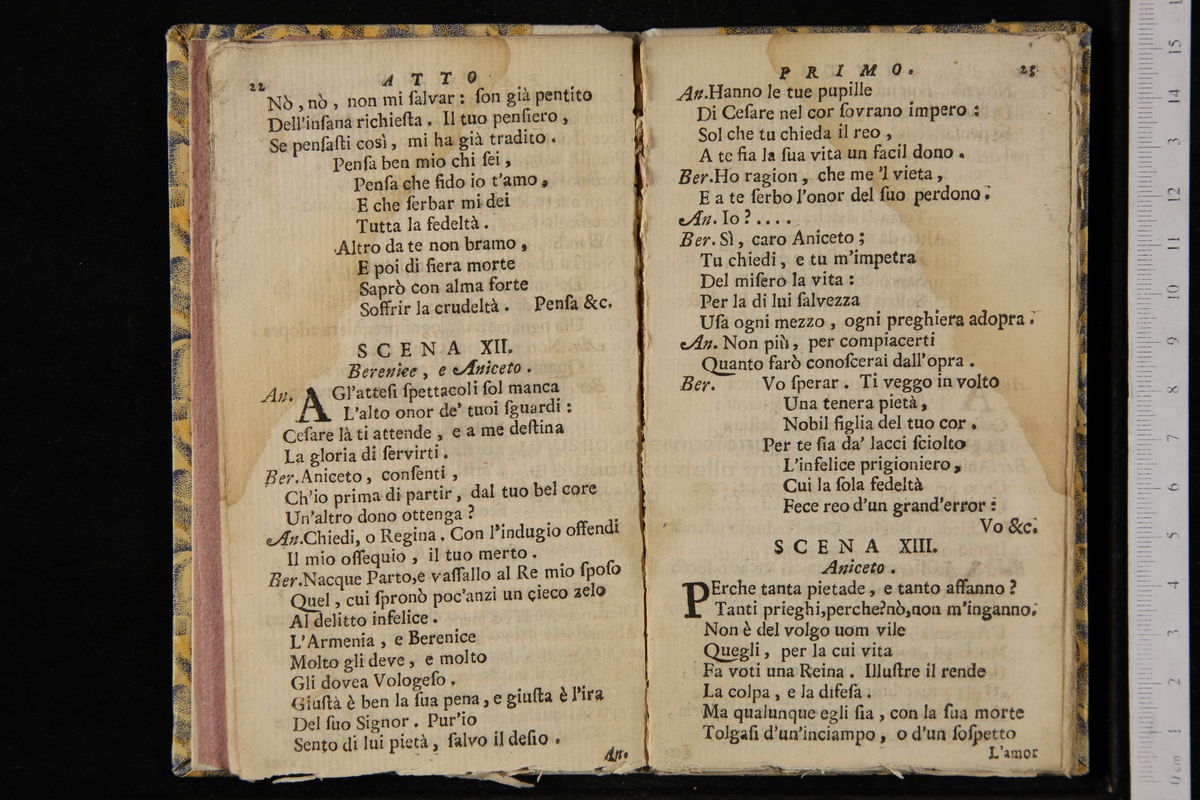 22
ATTO
Nò, nò, non mi ſalvar: ſon già pentito
Dell'inſana richieſta. Il tuo penſiero,
Se penſaſti così, mi ha già tradito.
Penſa ben mio chi ſei,
Penſa che fido io t'amo,
E che ſerbar mi dei
Tutta la fedeltà.
Altro da te non bramo,
E poi di fiera morte
Saprò con alma forte
Soffrir la crudeltà. Penſa &c.
SCENA XII.
Berenice, e Aniceto.
An. AGl'atteſi ſpettacoli ſol manca
L'alto onor de' tuoi ſguardi:
Ceſare là ti attende, e a me deſtina
La gloria di ſervirti.
Ber. Aniceto, conſenti,
Ch'io prima di partir, dal tuo bel core
Un'altro dono ottenga?
An. Chiedi, o Regina. Con l'indugio offendi
Il mio oſſequio, il tuo merto.
Ber. Nacque Parto, e vaſſallo al Re mio ſpoſo
Quel, cui ſpronò poc'anzi un cieco zelo
Al delitto infelice.
L'Armenia, e Berenice
Molto gli deve, e molto
Gli dovea Vologeſo.
Giuſtà è ben la ſua pena, e giuſta è l'ira
Del ſuo Signor. Pur'io
Sento di lui pietà, ſalvo il deſio.
An.
PRIMO.
23
An. Hanno le tue pupille
Di Ceſare nel cor ſovrano impero:
Sol che tu chieda il reo,
A te fia la ſua vita un facil dono.
Ber. Ho ragion, che me 'l vieta,
E a te ſerbo l'onor del ſuo perdono.
An. Io?....
Ber. Sì, caro Aniceto;
Tu chiedi, e tu m'impetra
Del miſero la vita:
Per la di lui ſalvezza
Uſa ogni mezzo, ogni preghiera adopra.
An. Non più, per compiacerti
Quanto farò conoſcerai dall'opra.
Ber. Vo ſperar. Ti veggo in volto
Una tenera pietà,
Nobil figlia del tuo cor.
Per te ſia da' lacci ſciolto
L'infelice prigioniero,
Cui la ſola fedeltà
Fece reo d'un grand'error:
Vo &c.
SCENA XIII.
Aniceto.
PErche tanta pietade, e tanto affanno?
Tanti prieghi, perche? nò, non m'inganno.
Non è del volgo uom vile
Quegli, per la cui vita
Fa voti una Reina. Illuſtre il rende
La colpa, e la difeſa.
Ma qualunque egli ſia, con la ſua morte
Tolgaſi d'un'inciampo, o d'un ſoſpetto
L'amor